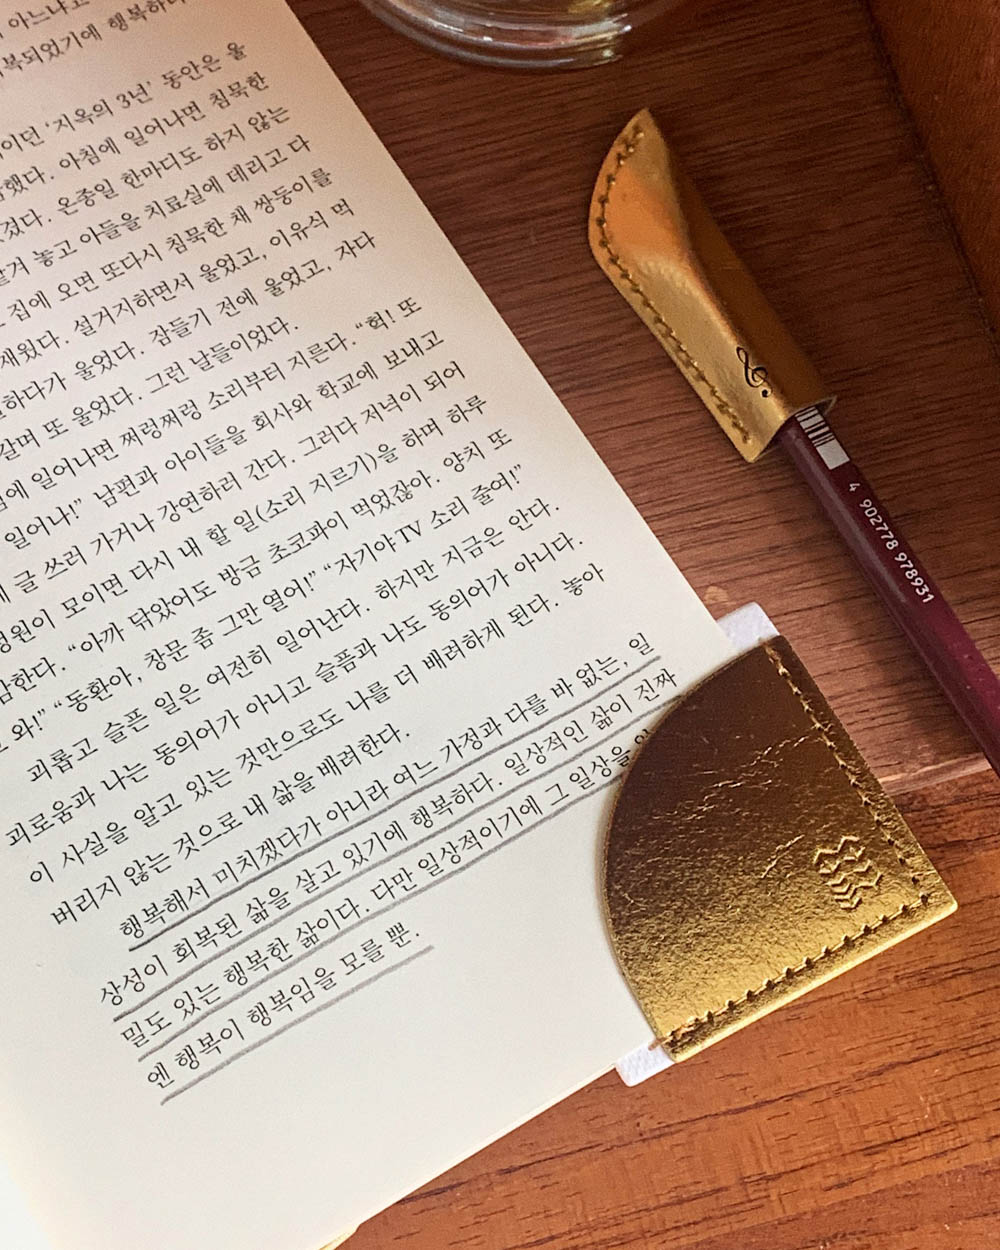 아느냐고
복되었기에 행복하다
이던 ‘지옥의 3년’ 동안은 울
했다. 아침에 일어나면 침묵한
겼다. 온종일 한마디도 하지 않는
맡겨 놓고 아들을 치료실에 데리고 다
집에 오면 또다시 침묵한 채 쌍둥이를
재웠다. 설거지하면서 울었고, 이유식 먹
하다가 울었다. 잠들기 전에 울었고, 자다
갈며 또 울었다. 그런 날들이었다.
에 일어나면 쩌렁쩌렁 소리부터 지른다. “헉! 또
일어나!” 남편과 아이들을 회사와 학교에 보내고
글 쓰러 가거나 강연하러 간다. 그러다 저녁이 되어
병원이 모이면 다시 내 할 일(소리 지르기)을 하며 하루
감한다. “아까 닦았어도 방금 초코파이 먹었잖아. 양치 또
와!” “동환아, 창문 좀 그만 열어!” “자기야 TV 소리 줄여!”
괴롭고 슬픈 일은 여전히 일어난다. 하지만 지금은 안다.
괴로움과 나는 동의어가 아니고 슬픔과 나도 동의어가 아니다.
이 사실을 알고 있는 것만으로도 나를 더 배려하게 된다. 놓아
버리지 않는 것으로 내 삶을 배려한다.
행복해서 미치겠다가 아니라 여느 가정과 다를 바 없는, 일
상성이 회복된 삶을 살고 있기에 행복하다. 일상적인 삶이 진짜
밀도 있는 행복한 삶이다. 다만 일상적이기에 그 일상을
엔 행복이 행복임을 모를 뿐.
4 902778 978931